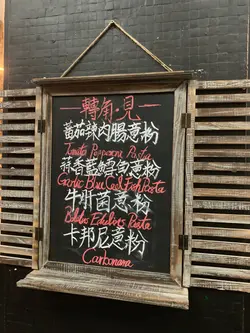 一轉角·見一
蕃茄辣肉腸意粉
Tomato Pepperoni Pasta
蒜香藍鱈魚意粉
Garlic Blue Cod Fish Pasta
牛肝菌意粉
Pasta
卡邦尼意粉
Carbonara